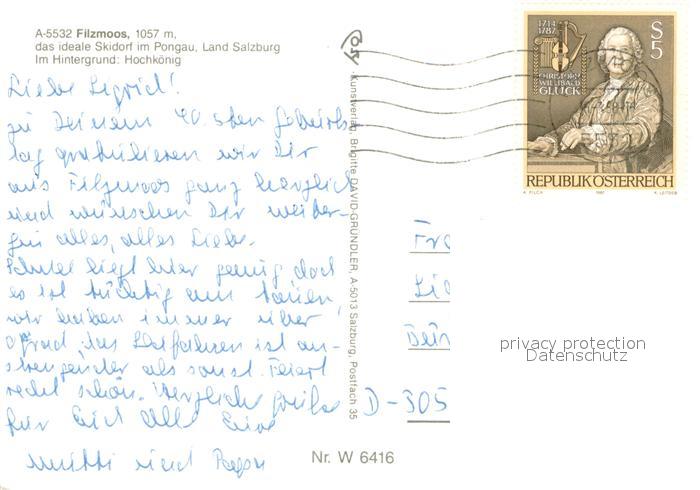 A-5532 Filzmoos, 1057 m,
das ideale Skidorf im Pongau, Land Salzburg
Im Hintergrund: Hochkönig
Liebe Sigrid!
zu Deinem 40.sten Geburts-
tag gratulieren wir Dir
aus Filzmoos ganz herzlich
und wünschen Dir weiter-
hin alles, alles Liebe.
Schnee liegt hier genug doch
es ist tüchtig am tauen,
wir haben immer über
0 Grad, das Skifahren ist an-
strengender als sonst. Feiert
recht schön. Herzliche Grüße
für Euch alle Eure
Mutti und Papa
Kunstverlag Brigitte DAVID-GRÜNDLER, A-5013 Salzburg, Postfach 35
Nr. W 6416
1714
1787
CHRISTOPH
WILLIBALD
GLUCK
S
5
REPUBLIK ÖSTERREICH
A. PILCH 1987 K. LEITGEB
D-305
privacy protection
Datenschutz